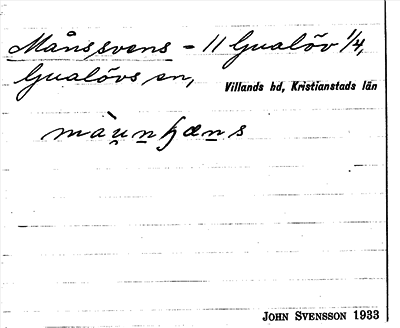 Måns,svens - 11 Gualöv 1/4,
Gualövs sn,
Villands hd, Kristianstads län
JOHN SVENSSON 1933